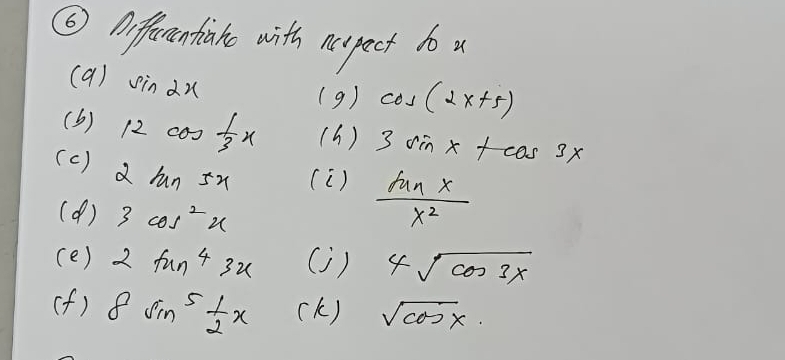 ⑥ Differentiate with respect to x
(a) sin 2x
(b) 12 cos 1/3 x
(c) 2 tan 5x
(d) 3 cos² x
(e) 2 tan⁴ 3x
(f) 8 sin⁵ 1/2 x
(g) cos (2x+5)
(h) 3 sin x + cos 3x
(i) tan x / x²
(j) 4 √(cos 3x)
(k) √(cos x) .